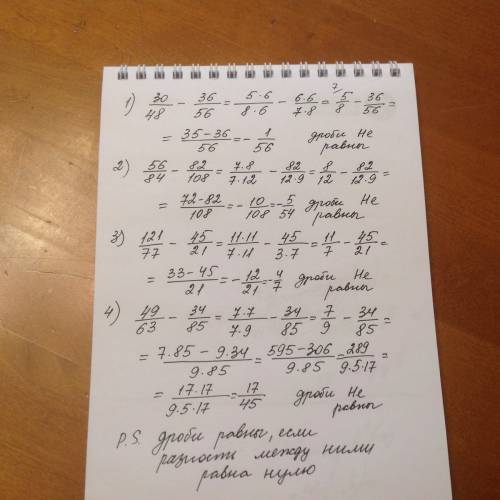 1) 30/48 - 36/56 = 5·6/8·6 - 6·6/7·8 = 7/ 5/8 - 36/56 =
= 35-36/56 = - 1/56 дроби не равны
2) 56/84 - 82/108 = 7·8/7·12 - 82/12·9 = 8/12 - 82/12·9 =
= 72-82/108 = - 10/108 = - 5/54 дроби не равны
3) 121/77 - 45/21 = 11·11/7·11 - 45/3·7 = 11/7 - 45/21 =
= 33-45/21 = - 12/21 = - 4/7 дроби не равны
4) 49/63 - 34/85 = 7·7/7·9 - 34/85 = 7/9 - 34/85 =
= 7·85 - 9·34/9·85 = 595-306/9·85 = 289/9·5·17 =
= 17·17/9·5·17 = 17/45 дроби не равны
P.S. дроби равны, если
разность между ними
равна нулю